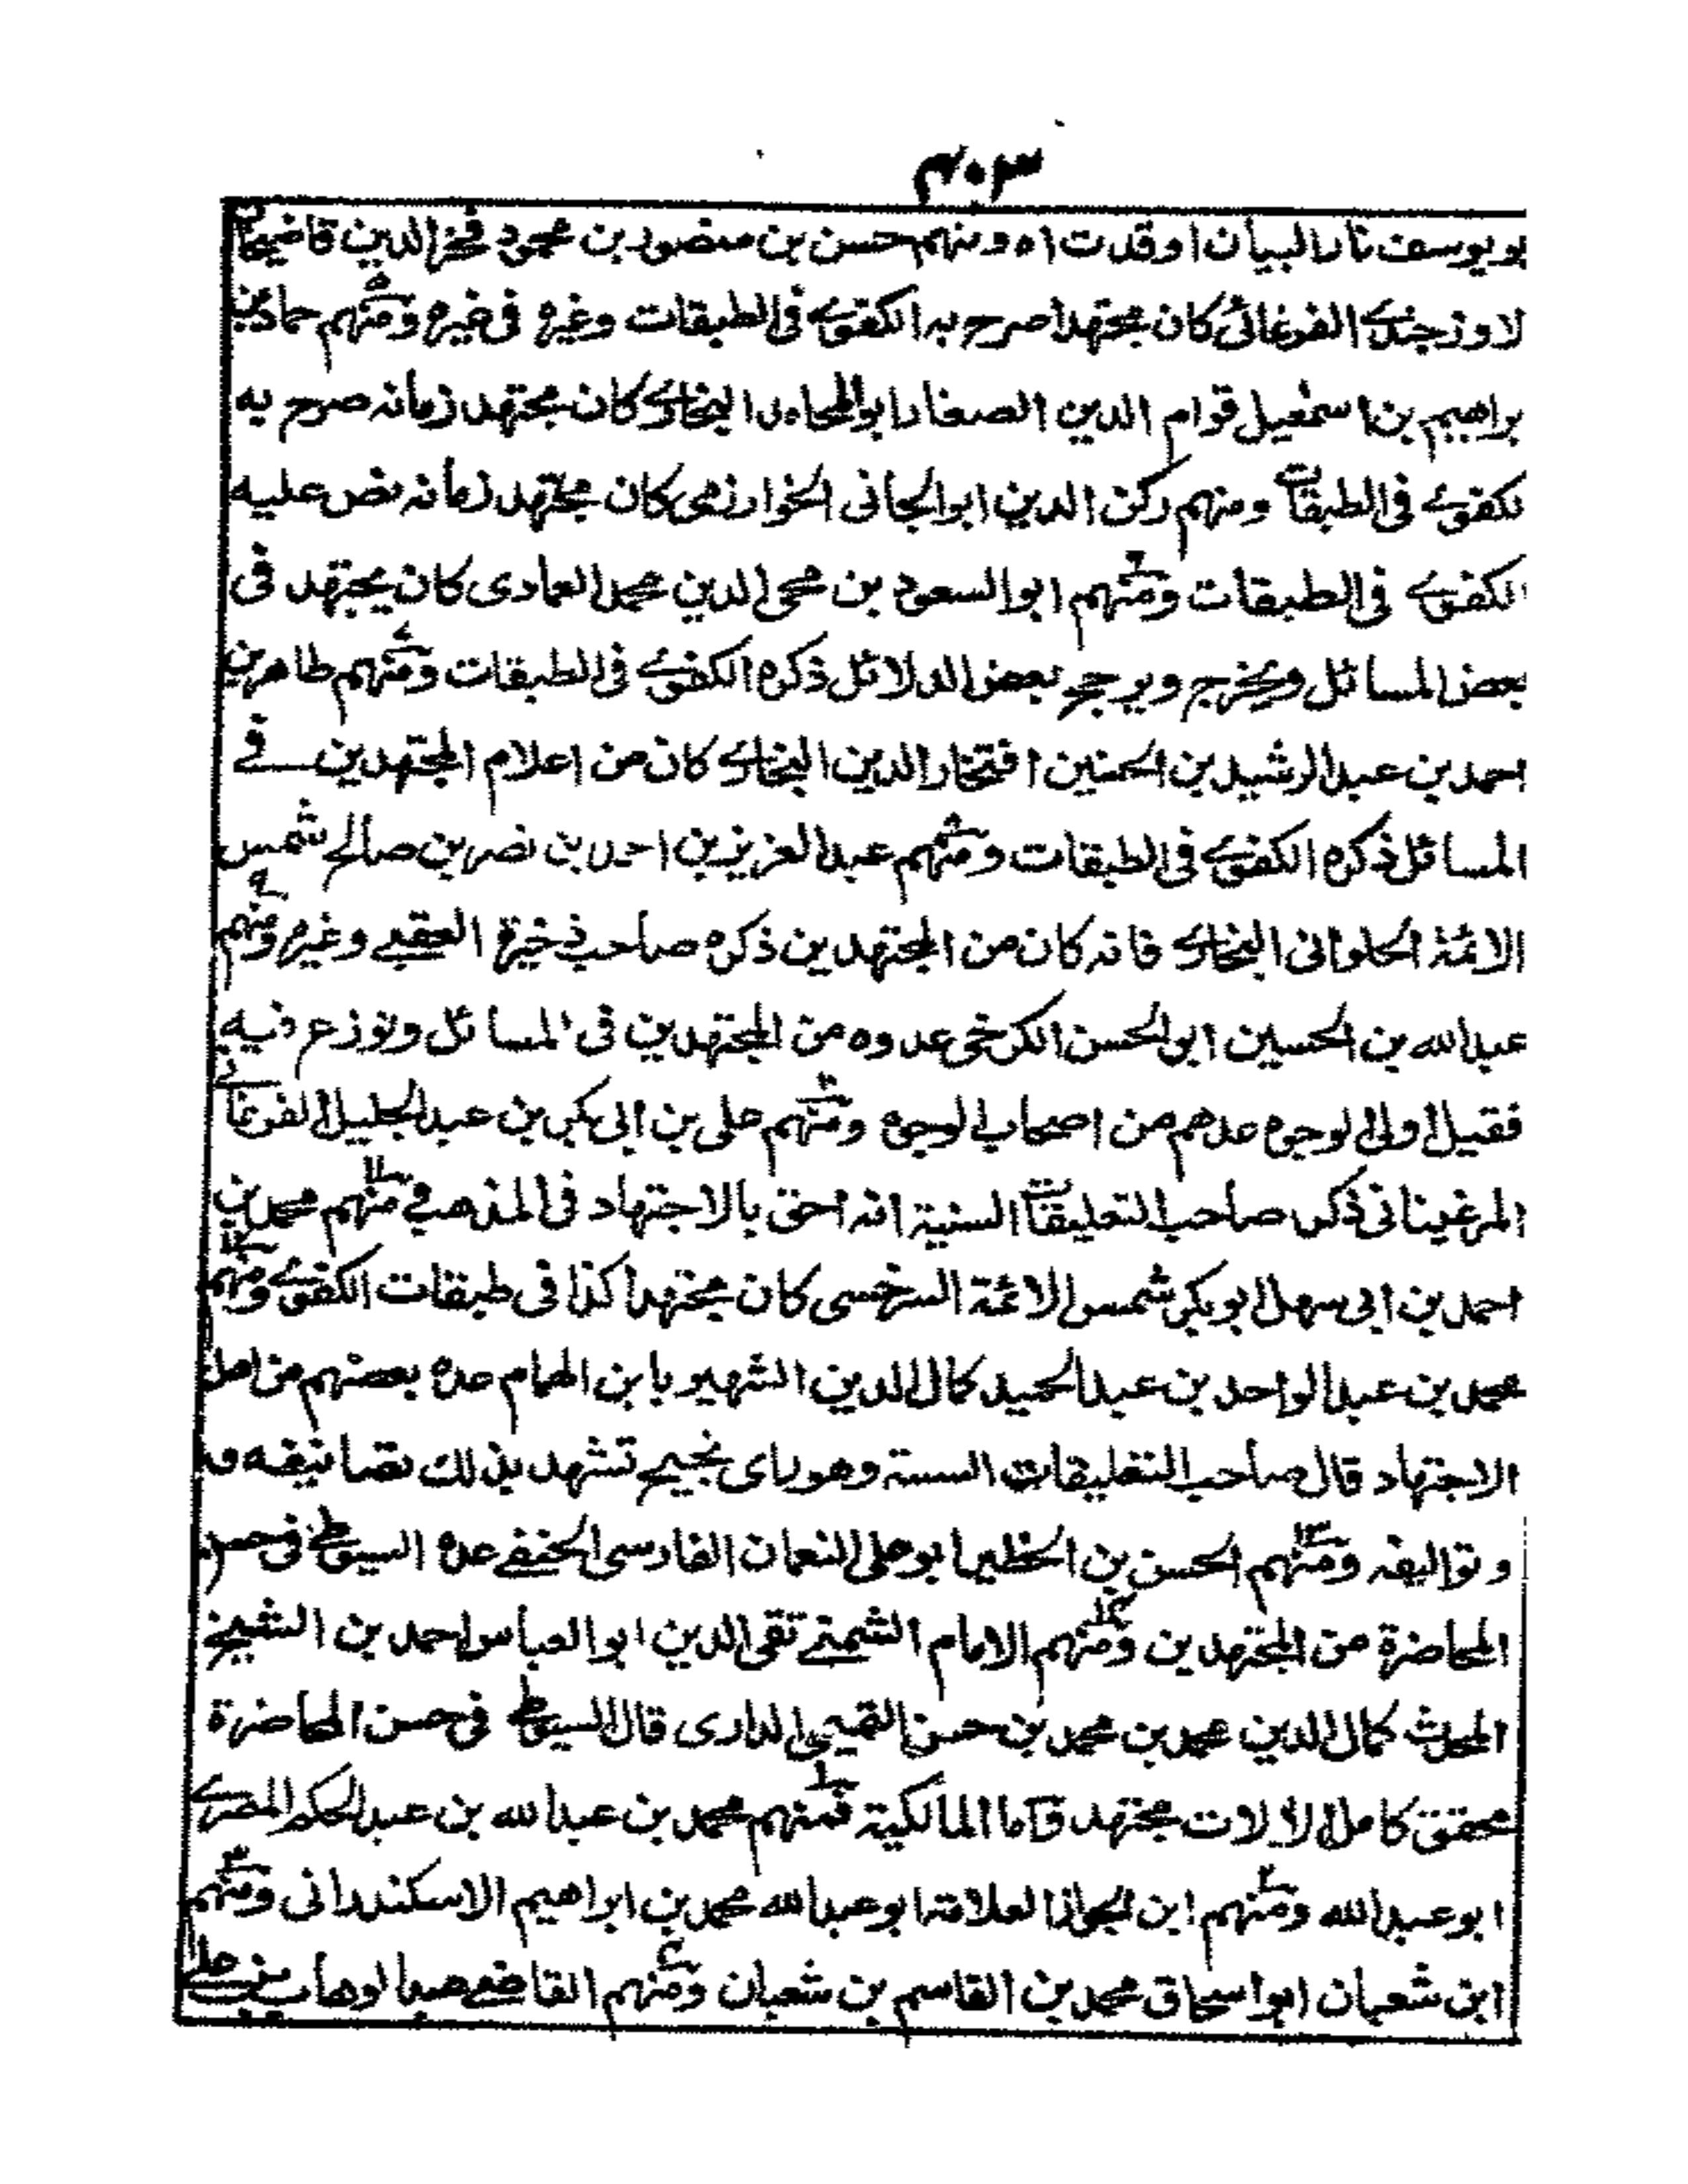 ۴۰۳
بويوسف نارالبيان اوقدت اه ومنهم حسن بن منصور بن محمود فخر الدين قاضيخان
لاوزجندى الفرغانى كان مجتهدا صرح به الكفوى فى الطبقات وغيره فى غيره ومنهم حماد بن
براهيم بن اسمعيل قوام الدين الصفار ابوالمحامد البخارى كان مجتهد زمانه صرح به
لكفوى فى الطبقات ومنهم ركن الدين ابوالجانى الخوارزمى كان مجتهد زمانه نص عليه
الكفوى فى الطبقات ومنهم ابوالسعود بن محى الدين محمد العمادى كان يجتهد فى
بعض المسائل ويخرج ويرجح بعض الدلائل ذكره الكفوى فى الطبقات ومنهم طاهر بن
احمد بن عبدالرشيد بن الحسين افتخار الدين البخارى كان من اعلام المجتهدين فى
المسائل ذكره الكفوى فى الطبقات ومنهم عبدالعزيز بن احمد بن نصر بن صالح شمس
الائمة الحلوانى البخارى فانه كان من المجتهدين ذكره صاحب ذخيرة العقبى وغيره ومنهم
عبدالله بن الحسين ابوالحسن الكرخى عدوه من المجتهدين فى المسائل ونوزع فيه
فقيل اولى لوجوه عدهم من اصحاب الوجوه ومنهم على بن ابى بكر بن عبدالجليل الفرغانى
المرغينانى ذكر صاحب التعليقات السنية انه احق بالاجتهاد فى المذهب ومنهم محمد بن
احمد بن ابى سهل ابوبكر شمس الائمة السرخسى كان مجتهدا كذا فى طبقات الكفوى ومنهم
محمد بن عبدالواحد بن عبدالحميد كمال الدين الشهير بابن الهمام عده بعضهم من اهل
الاجتهاد قال صاحب التعليقات السنية وهو راى نجيح تشهد بذلك تصانيفه
وتواليفه ومنهم الحسن بن الخطير ابوعلى النعمان الفارسى الحنفى عده السيوطى فى حسن
المحاضرة من المجتهدين ومنهم الامام الشمنى تقى الدين ابوالعباس احمد بن الشيخ
المحدث كمال الدين محمد بن محمد بن حسن التميمى الدارى قال السيوطى فى حسن المحاضرة
محقق كامل الالات مجتهد واما المالكية فمنهم محمد بن عبدالله بن عبدالحكم المصرى
ابوعبدالله ومنهم ابن المواز العلامة ابوعبدالله محمد بن ابراهيم الاسكندرانى ومنهم
ابن شعبان ابواسحاق محمد بن القاسم بن شعبان ومنهم القاضى عبدالوهاب بن على